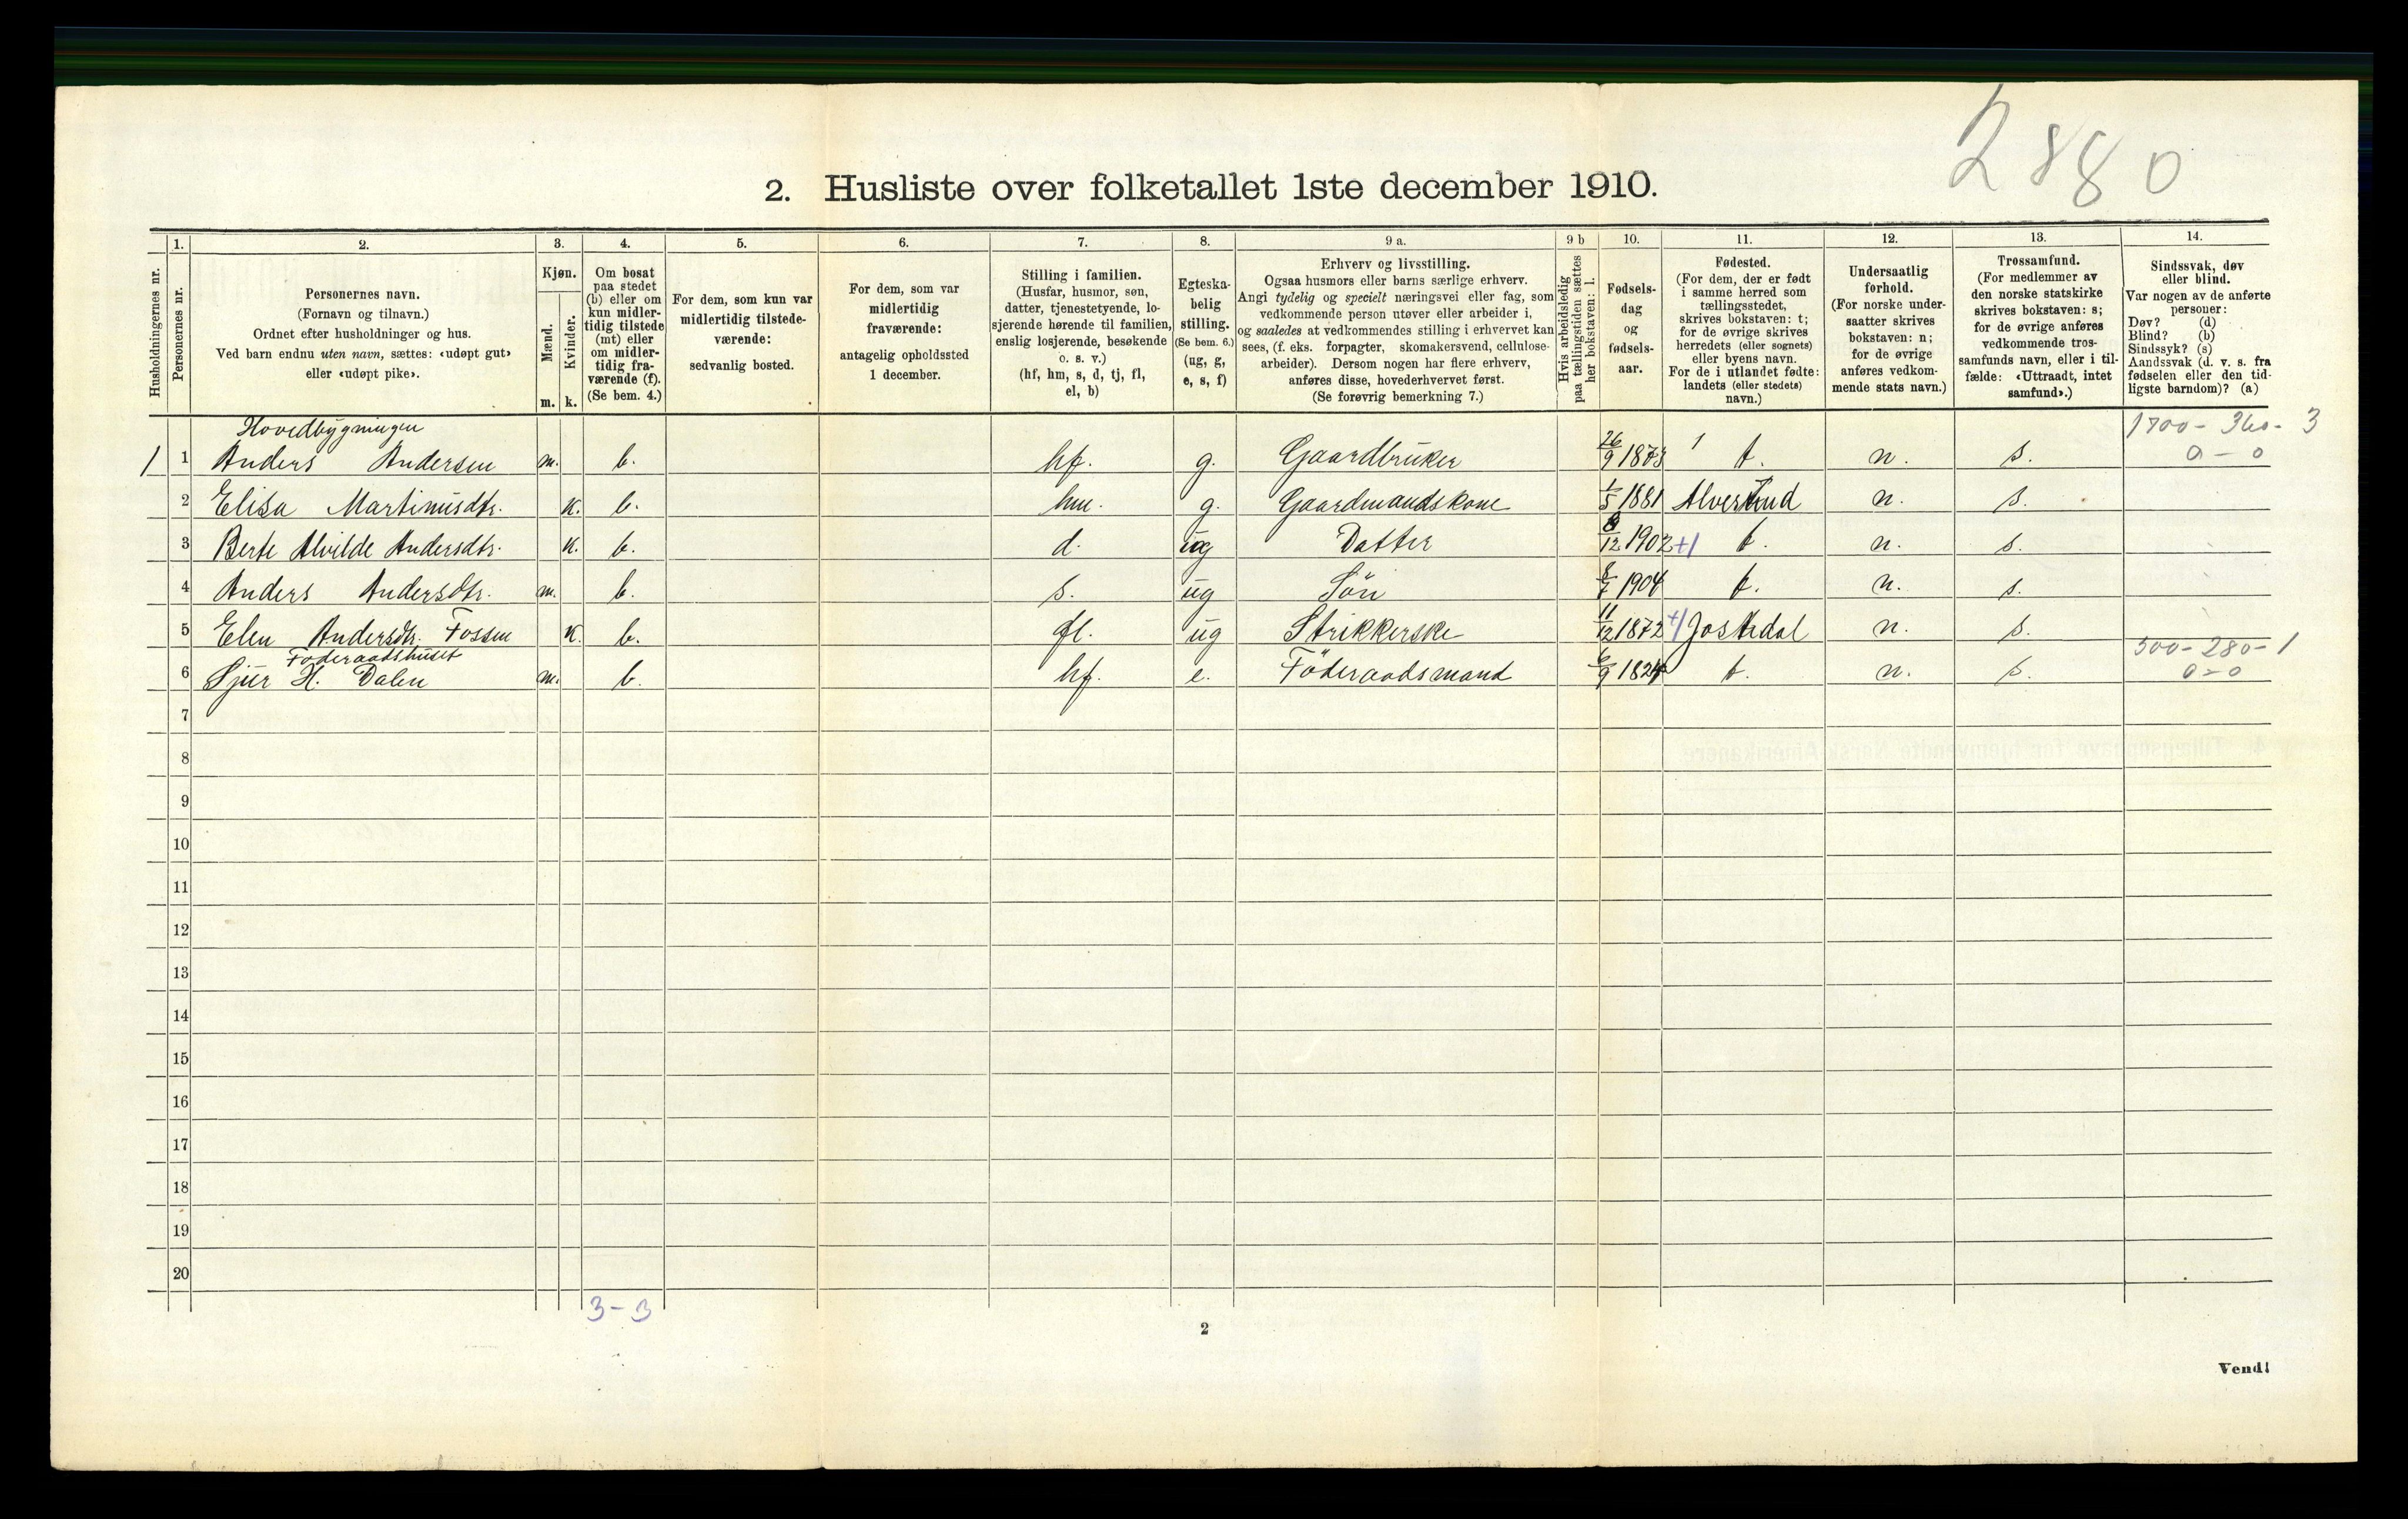 2880
2. Husliste over folketallet 1ste december 1910.
1. 2. 3. 4. 5. 6. 7. 8. 9 a. 9 b 10. 11. 12. 13. 14.
Husholdningernes nr.
Personernes nr.
Personernes navn.
(Fornavn og tilnavn.)
Ordnet efter husholdninger og hus.
Ved barn endnu uten navn, sættes: «udøpt gut»
eller «udøpt pike».
Kjøn.
Mænd.
Kvinder.
m. k.
Om bosat
paa stedet
(b) eller om
kun midler-
tidig tilstede
(mt) eller
om midler-
tidig fra-
værende (f).
(Se bem. 4.)
For dem, som kun var
midlertidig tilstede-
værende:
sedvanlig bosted.
For dem, som var
midlertidig
fraværende:
antagelig opholdssted
1 december.
Stilling i familien.
(Husfar, husmor, søn,
datter, tjenestetyende, lo-
sjerende hørende til familien,
enslig losjerende, besøkende
o. s. v.)
(hf, hm, s, d, tj, fl,
el, b)
Egteska-
belig
stilling.
(Se bem. 6.)
(ug, g,
e, s, f)
Erhverv og livsstilling.
Ogsaa husmors eller barns særlige erhverv.
Angi tydelig og specielt næringsvei eller fag, som
vedkommende person utøver eller arbeider i,
og saaledes at vedkommendes stilling i erhvervet kan
sees, (f. eks. forpagter, skomakersvend, cellulose-
arbeider). Dersom nogen har flere erhverv,
anføres disse, hovederhvervet først.
(Se forøvrig bemerkning 7.)
Hvis arbeidsledig
paa tællingstiden sættes
her bokstaven: l.
Fødsels-
dag
og
fødsels-
aar.
Fødested.
(For dem, der er født
i samme herred som
tællingsstedet,
skrives bokstaven: t;
for de øvrige skrives
herredets (eller sognets)
eller byens navn.
For de i utlandet fødte:
landets (eller stedets)
navn.)
Undersaatlig
forhold.
(For norske under-
saatter skrives
bokstaven: n;
for de øvrige
anføres vedkom-
mende stats navn.)
Trossamfund.
(For medlemmer av
den norske statskirke
skrives bokstaven: s;
for de øvrige anføres
vedkommende tros-
samfunds navn, eller i til-
fælde: «Uttraadt, intet
samfund».)
Sindssvak, døv
eller blind.
Var nogen av de anførte
personer:
Døv? (d)
Blind? (b)
Sindssyk? (s)
Aandssvak (d. v. s. fra
fødselen eller den tid-
ligste barndom)? (a)
Hovedbygningen 1700-360-3
1 1 Anders Andersen m. b. hf. g. Gaardbruker 26/9 1873 1 t. n. s. 0-0
2 Elisa Martinusdtr. K. b. hm. g. Gaardmandskone 1/5 1881 n. s.
3 Berte Alvilde Andersdtr. K. b. d. ug Datter 8/12 1902 +1 t. n. s.
4 Anders Andersdtr. m. b. s. ug Sön 1904 t. n. s.
5 Elen Andersdtr. Fossen K. b. fl. ug Strikkerske 11/12 1872 +1 Jostedal n. s.
Föderaadshuset 500-280-1
6 Sjur H. Dalen m. b. hf. e. Föderaadsmand 6/9 1824 t. n. s. 0-0
7
8
9
10
11
12
13
14
15
16
17
18
19
20
3-3
2
Vend!